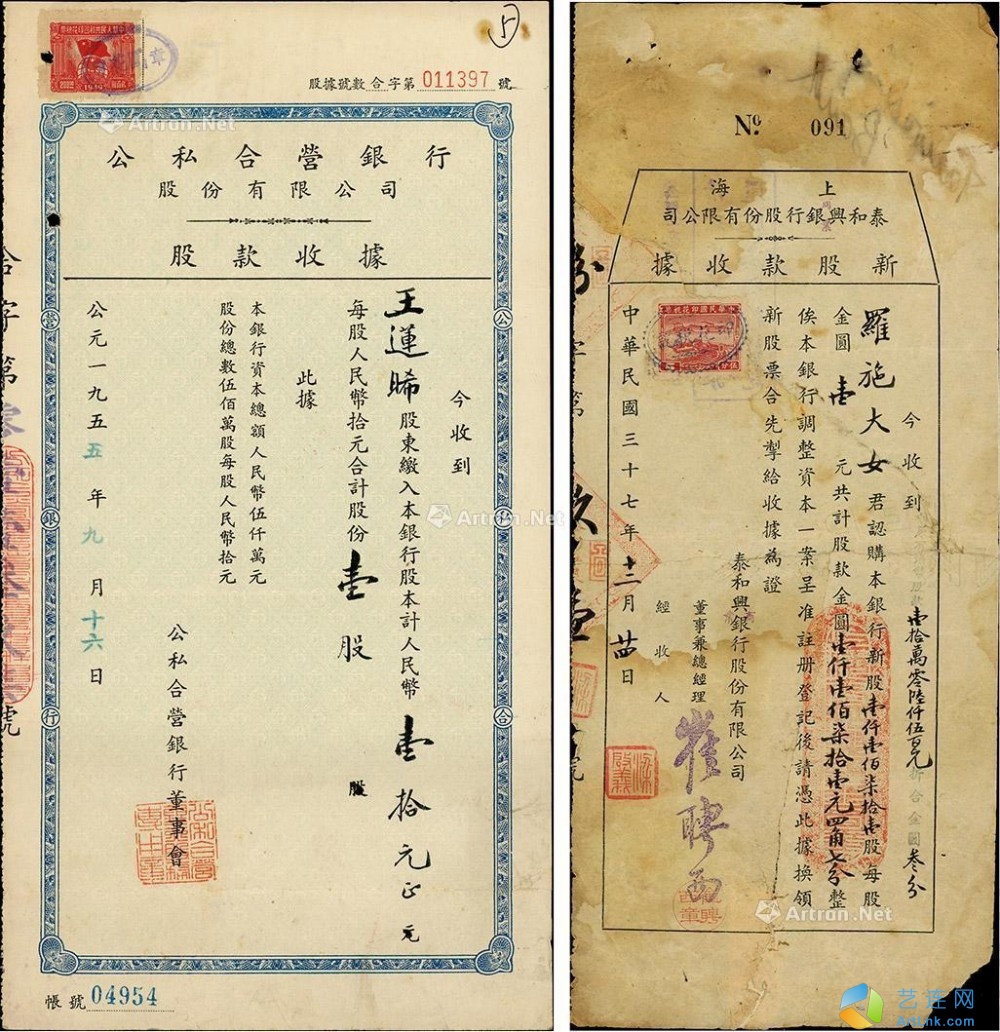 5
股據號數合字第011397號
公私合營銀行
股份有限公司
股款收據
今收到
王運晞股東繳入本銀行股本計人民幣壹拾元正元
每股人民幣拾元合計股份壹股
股
此據
本銀行資本總額人民幣伍仟萬元
股份總數伍佰萬股每股人民幣拾元
公私合營銀行董事會
公元一九五五年九月十六日
帳號04954
公私合營銀行
合字第
號
Artron.Net
Artron.Net
No. 091
上海
泰和興銀行股份有限公司
新股款收據
今收到
壹拾萬零陸仟伍百元折合金圓叁分
羅施大女君認購本銀行新股壹仟壹佰柒拾壹股每股
金圓壹元共計股款金圓壹仟壹佰柒拾壹元四角七分整
俟本銀行調整資本一案呈准註冊登記後請憑此據換領
新股票合先掣給收據為證
泰和興銀行股份有限公司
董事兼總經理
崔聘西
經收人
中華民國三十七年十二月廿四日
Artron.Net
艺连网
Artlnk.com